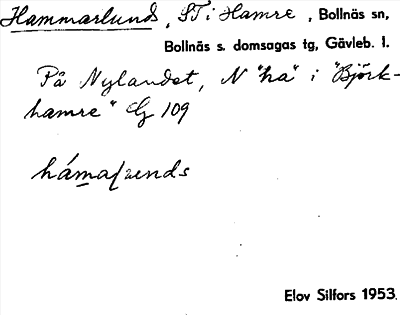 Hammarlund, ST i Hamre, Bollnäs sn,
Bollnäs s. domsagas tg, Gävleb. l.
På Nylandet, N "ha" i "Björk-
hamre" Eg 109
Elov Silfors 1953.